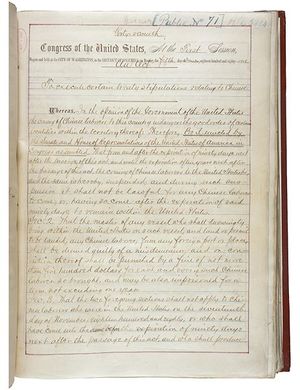 Public No 71
Forty-seventh
Congress of the United States, At the First Session,
Begun and held at the CITY OF WASHINGTON, in the DISTRICT OF COLUMBIA, on Monday, the fifth day of December, eighteen hundred and eighty-one.
An Act
To execute certain treaty stipulations relating to Chinese.
Whereas, In the opinion of the Government of the United States
the coming of Chinese laborers to this country endangers the good order of certain
localities within the territory thereof: Therefore, Be it enacted by
the Senate and House of Representatives of the United States of America in
Congress assembled, That from and after the expiration of ninety days next
after the passage of this act, and until the expiration of ten years next after
the passage of this act, the coming of Chinese laborers to the United States be,
and the same is hereby, suspended; and during such suspen-
sion it shall not be lawful for any Chinese laborer
to come, or, having so come after the expiration of said
ninety days, to remain within the United States.
Sec. 2. That the master of any vessel who shall knowingly
bring within the United States on such vessel, and land or permit
to be landed, any Chinese laborer, from any foreign port or place,
shall be deemed guilty of a misdemeanor, and on convic-
tion thereof shall be punished by a fine of not more
than five hundred dollars for each and every such Chinese
laborer so brought, and may be also imprisoned for a
term not exceeding one year.
Sec. 3. That the two foregoing sections shall not apply to Chi-
nese laborers who were in the United States on the seventeenth
day of November, eighteen hundred and eighty, or who shall
have come into the same before the expiration of ninety days
next after the passage of this act, and who shall produce